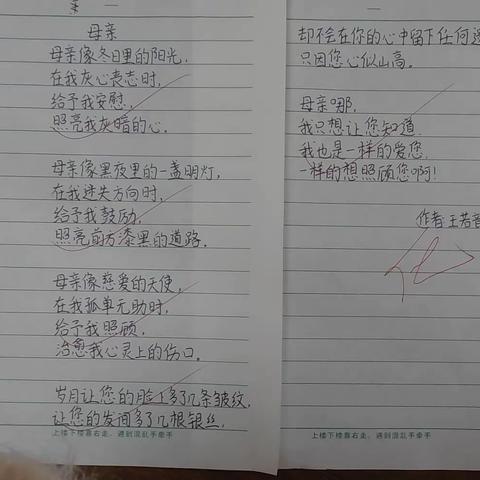 母亲
母亲像冬日里的阳光，
在我灰心丧志时，
给予我安慰，
照亮我灰暗的心。
母亲像黑夜里的一盏明灯，
在我迷失方向时，
给予我鼓励，
照亮前方漆黑的道路。
母亲像慈爱的天使，
在我孤单无助时，
给予我照顾，
治愈我心灵上的伤口。
岁月让您的脸上多了几条皱纹，
让您的发间多了几根银丝，
上楼下楼靠右走，遇到混乱手牵手
却不会在你的心中留下任何
只因您心似山高。
母亲哪，
我只想让您知道
我也是一样的爱您
一样的想照顾您啊！
作者:王若
上楼下楼靠右走，遇到混乱手牵手